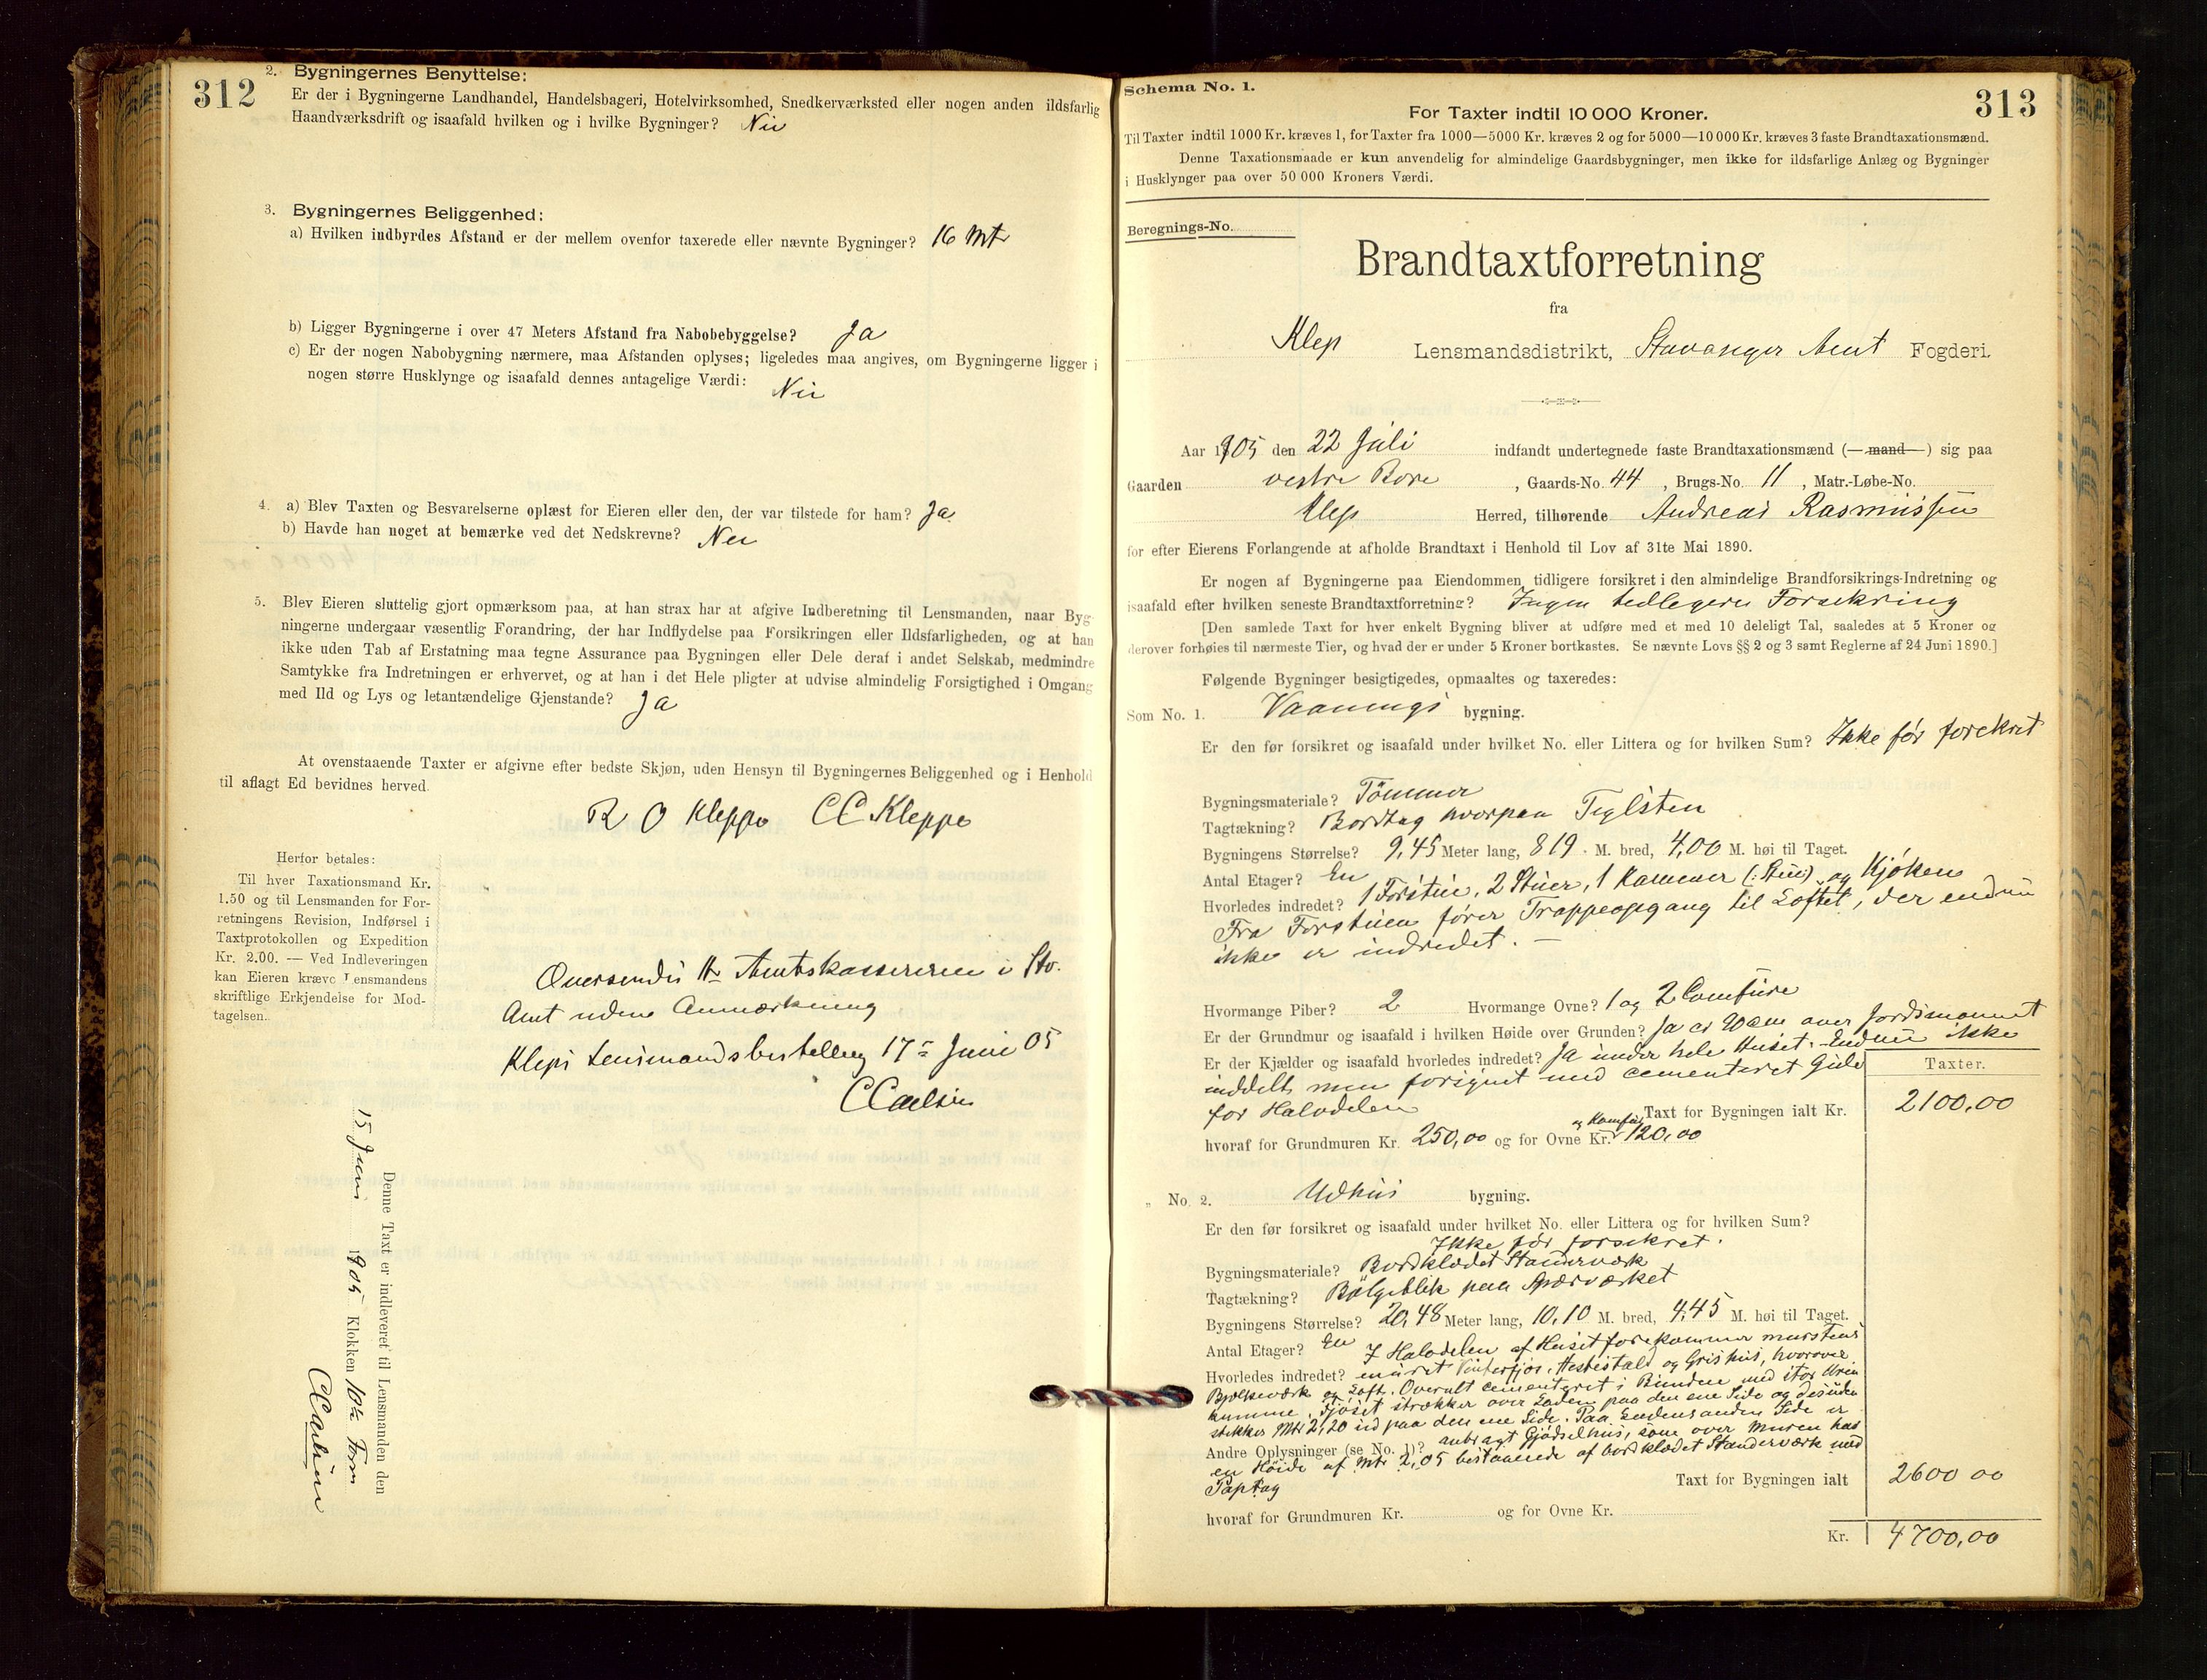 312
2. Bygningernes Benyttelse:
Er der i Bygningerne Landhandel, Handelsbageri, Hotelvirksomhed, Snedkerværksted eller nogen anden ildsfarlig
Haandværksdrift og isaafald hvilken og i hvilke Bygninger? Nei
3. Bygningernes Beliggenhed:
a) Hvilken indbyrdes Afstand er der mellem ovenfor taxerede eller nævnte Bygninger? 16 Mtr
b) Ligger Bygningerne i over 47 Meters Afstand fra Nabobebyggelse? Ja
c) Er der nogen Nabobygning nærmere, maa Afstanden oplyses; ligeledes maa angives, om Bygningerne ligger i
nogen større Husklynge og isaafald dennes antagelige Værdi: Nei
4. a) Blev Taxten og Besvarelserne oplæst for Eieren eller den, der var tilstede for ham? Ja
b) Havde han noget at bemærke ved det Nedskrevne? Nei
5. Blev Eieren sluttelig gjort opmærksom paa, at han strax har at afgive Indberetning til Lensmanden, naar Byg-
ningerne undergaar væsentlig Forandring, der har Indflydelse paa Forsikringen eller Ildsfarligheden, og at han
ikke uden Tab af Erstatning maa tegne Assurance paa Bygningen eller Dele deraf i andet Selskab, medmindre
Samtykke fra Indretningen er erhvervet, og at han i det Hele pligter at udvise almindelig Forsigtighed i Omgang
med Ild og Lys og letantændelige Gjenstande? Ja
At ovenstaaende Taxter er afgivne efter bedste Skjøn, uden Hensyn til Bygningernes Beliggenhed og i Henhold
til aflagt Ed bevidnes herved.
R O Kleppe CC Kleppe
Herfor betales:
Til hver Taxationsmand Kr.
1.50 og til Lensmanden for For-
retningens Revision, Indførsel i
Taxtprotokollen og Expedition
Kr. 2.00. — Ved Indleveringen
kan Eieren kræve Lensmandens
skriftlige Erkjendelse for Mod-
tagelsen.
Oversendes Hr Amtskassereren i Stv.
Amt uden Anmærkning
Kleps Lensmandsbestilling 17 Juni 05
CCarlsen
Denne Taxt er indleveret til Lensmanden den
15 Juni 1905 Klokken 10½ Form
CCarlsen
313
Schema No. 1.
For Taxter indtil 10 000 Kroner.
Til Taxter indtil 1000 Kr. kræves 1, for Taxter fra 1000—5000 Kr. kræves 2 og for 5000—10 000 Kr. kræves 3 faste Brandtaxationsmænd.
Denne Taxationsmaade er kun anvendelig for almindelige Gaardsbygninger, men ikke for ildsfarlige Anlæg og Bygninger
i Husklynger paa over 50 000 Kroners Værdi.
Beregnings-No.
Brandtaxtforretning
fra
Klep Lensmandsdistrikt, Stavanger Amt Fogderi.
Aar 1905 den 22 Juli indfandt undertegnede faste Brandtaxationsmænd (—mand—) sig paa
Gaarden vestre Bore, Gaards-No. 44, Brugs-No. 11, Matr.-Løbe-No.
Klep Herred, tilhørende Andreas Rasmussen
for efter Eierens Forlangende at afholde Brandtaxt i Henhold til Lov af 31te Mai 1890.
Er nogen af Bygningerne paa Eiendommen tidligere forsikret i den almindelige Brandforsikrings-Indretning og
isaafald efter hvilken seneste Brandtaxtforretning? Ingen tidligere Forsikring
[Den samlede Taxt for hver enkelt Bygning bliver at udføre med et med 10 deleligt Tal, saaledes at 5 Kroner og
derover forhøies til nærmeste Tier, og hvad der er under 5 Kroner bortkastes. Se nævnte Lovs §§ 2 og 3 samt Reglerne af 24 Juni 1890.]
Følgende Bygninger besigtigedes, opmaaltes og taxeredes:
Som No. 1. Vaanings bygning.
Er den før forsikret og isaafald under hvilket No. eller Littera og for hvilken Sum? Ikke før forsikret
Bygningsmateriale? Tømmer
Tagtækning? Bordtag hvorpaa Teglsten
Bygningens Størrelse? 9,45 Meter lang, 819 M. bred, 4,00 M. høi til Taget.
Antal Etager? En
Hvorledes indredet? 1 Forstue, 2 Stuer, 1 Kammer (: Stue) og Kjøken
Fra Forstuen fører Trappeopgang til Loftet, der endnu
ikke er indredet. —
Hvormange Piber? 2 Hvormange Ovne? 1 og 2 Comfure
Er der Grundmur og isaafald i hvilken Høide over Grunden? Ja ct over Jordsmonnet
Er der Kjælder og isaafald hvorledes indredet? Ja under hele Huset. Endnu ikke
inddelt, men forsynet med cementeret Gulv
for Halvdelen
Taxter.
Taxt for Bygningen ialt Kr. 2100,00
hvoraf for Grundmuren Kr. 250,00 og for Ovne og Komfur Kr. 120,00
" No. 2. Udhus bygning.
Er den før forsikret og isaafald under hvilket No. eller Littera og for hvilken Sum?
Ikke før forsikret.
Bygningsmateriale? Bordklædet Standerværk
Tagtækning? Bølgeblik paa Spærværket
Bygningens Størrelse? 20,48 Meter lang, 10,10 M. bred, 4,45 M. høi til Taget.
Antal Etager? En I Halvdelen af Huset forekommer murstens
Hvorledes indredet? muret Vinterfjøs, Hestestald og Grishus, hvorover
Bjelkeværk og Loft. Overalt cementeret i Bunden med stor Urin
kumme. Fjøset strækker over Laden paa den ene Side og desuden
stikker Mtr 2,20 ud paa den ene Side. Paa Ladens anden Side er
Andre Oplysninger (se No. 1)? anbragt Gjødselhus, som over Muren har
en Høide af Mtr 2,05 bestaaende af bordklædet Standerværk med
Paptag
Taxt for Bygningen ialt 2600 00
hvoraf for Grundmuren Kr. og for Ovne Kr.
Kr. 4700,00